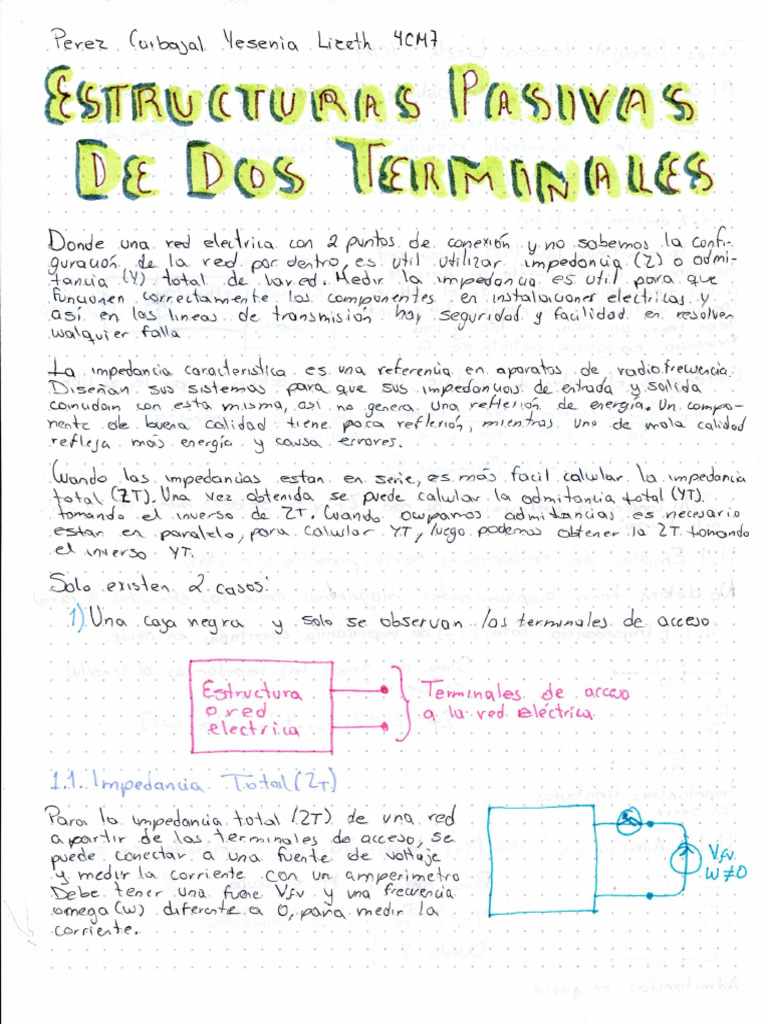 Perez Carbajal Yesenia Lizeth 4CM7
ESTRUCTURAS PASIVAS
DE DOS TERMINALES
Donde una red electrica con 2 puntos de conexión y no sabemos la confi-
guración de la red por dentro, es util utilizar impedancia (Z) o admi-
tancia (Y) total de la red. Medir la impedancia es util para que
funcionen correctamente los componentes en instalaciones electricas y
así en las lineas de transmisión hay seguridad y facilidad en resolver
cualquier falla.
La impedancia caracteristica es una referencia en aparatos de radiofrecuencia.
Diseñan sus sistemas para que sus impedancias de entrada y salida
coincidan con esta misma, asi no genera una reflexión de energía. Un compo-
nente de buena calidad tiene poca reflexión, mientras uno de mala calidad
refleja más energía y causa errores.
Cuando las impedancias estan en serie, es más facil calcular la impedancia
total (ZT). Una vez obtenida se puede calcular la admitancia total (YT).
tomando el inverso de ZT. Cuando ocupamos admitancias es necesario
estar en paralelo, para calcular YT, luego podemos obtener la ZT tomando
el inverso YT.
Solo existen 2 casos:
1) Una caja negra y solo se observan las terminales de acceso
Estructura
o red
electrica
Terminales de acceso
a la red eléctrica
1.1. Impedancia Total (ZT)
Para la impedancia total (ZT) de una red
a partir de las terminales de acceso, se
puede conectar a una fuente de voltaje
y medir la corriente con un amperimetro
Debe tener una fuente Vfv y una frecuencia
omega (w) diferente a 0, para medir la
corriente.
Vfv
W≠0